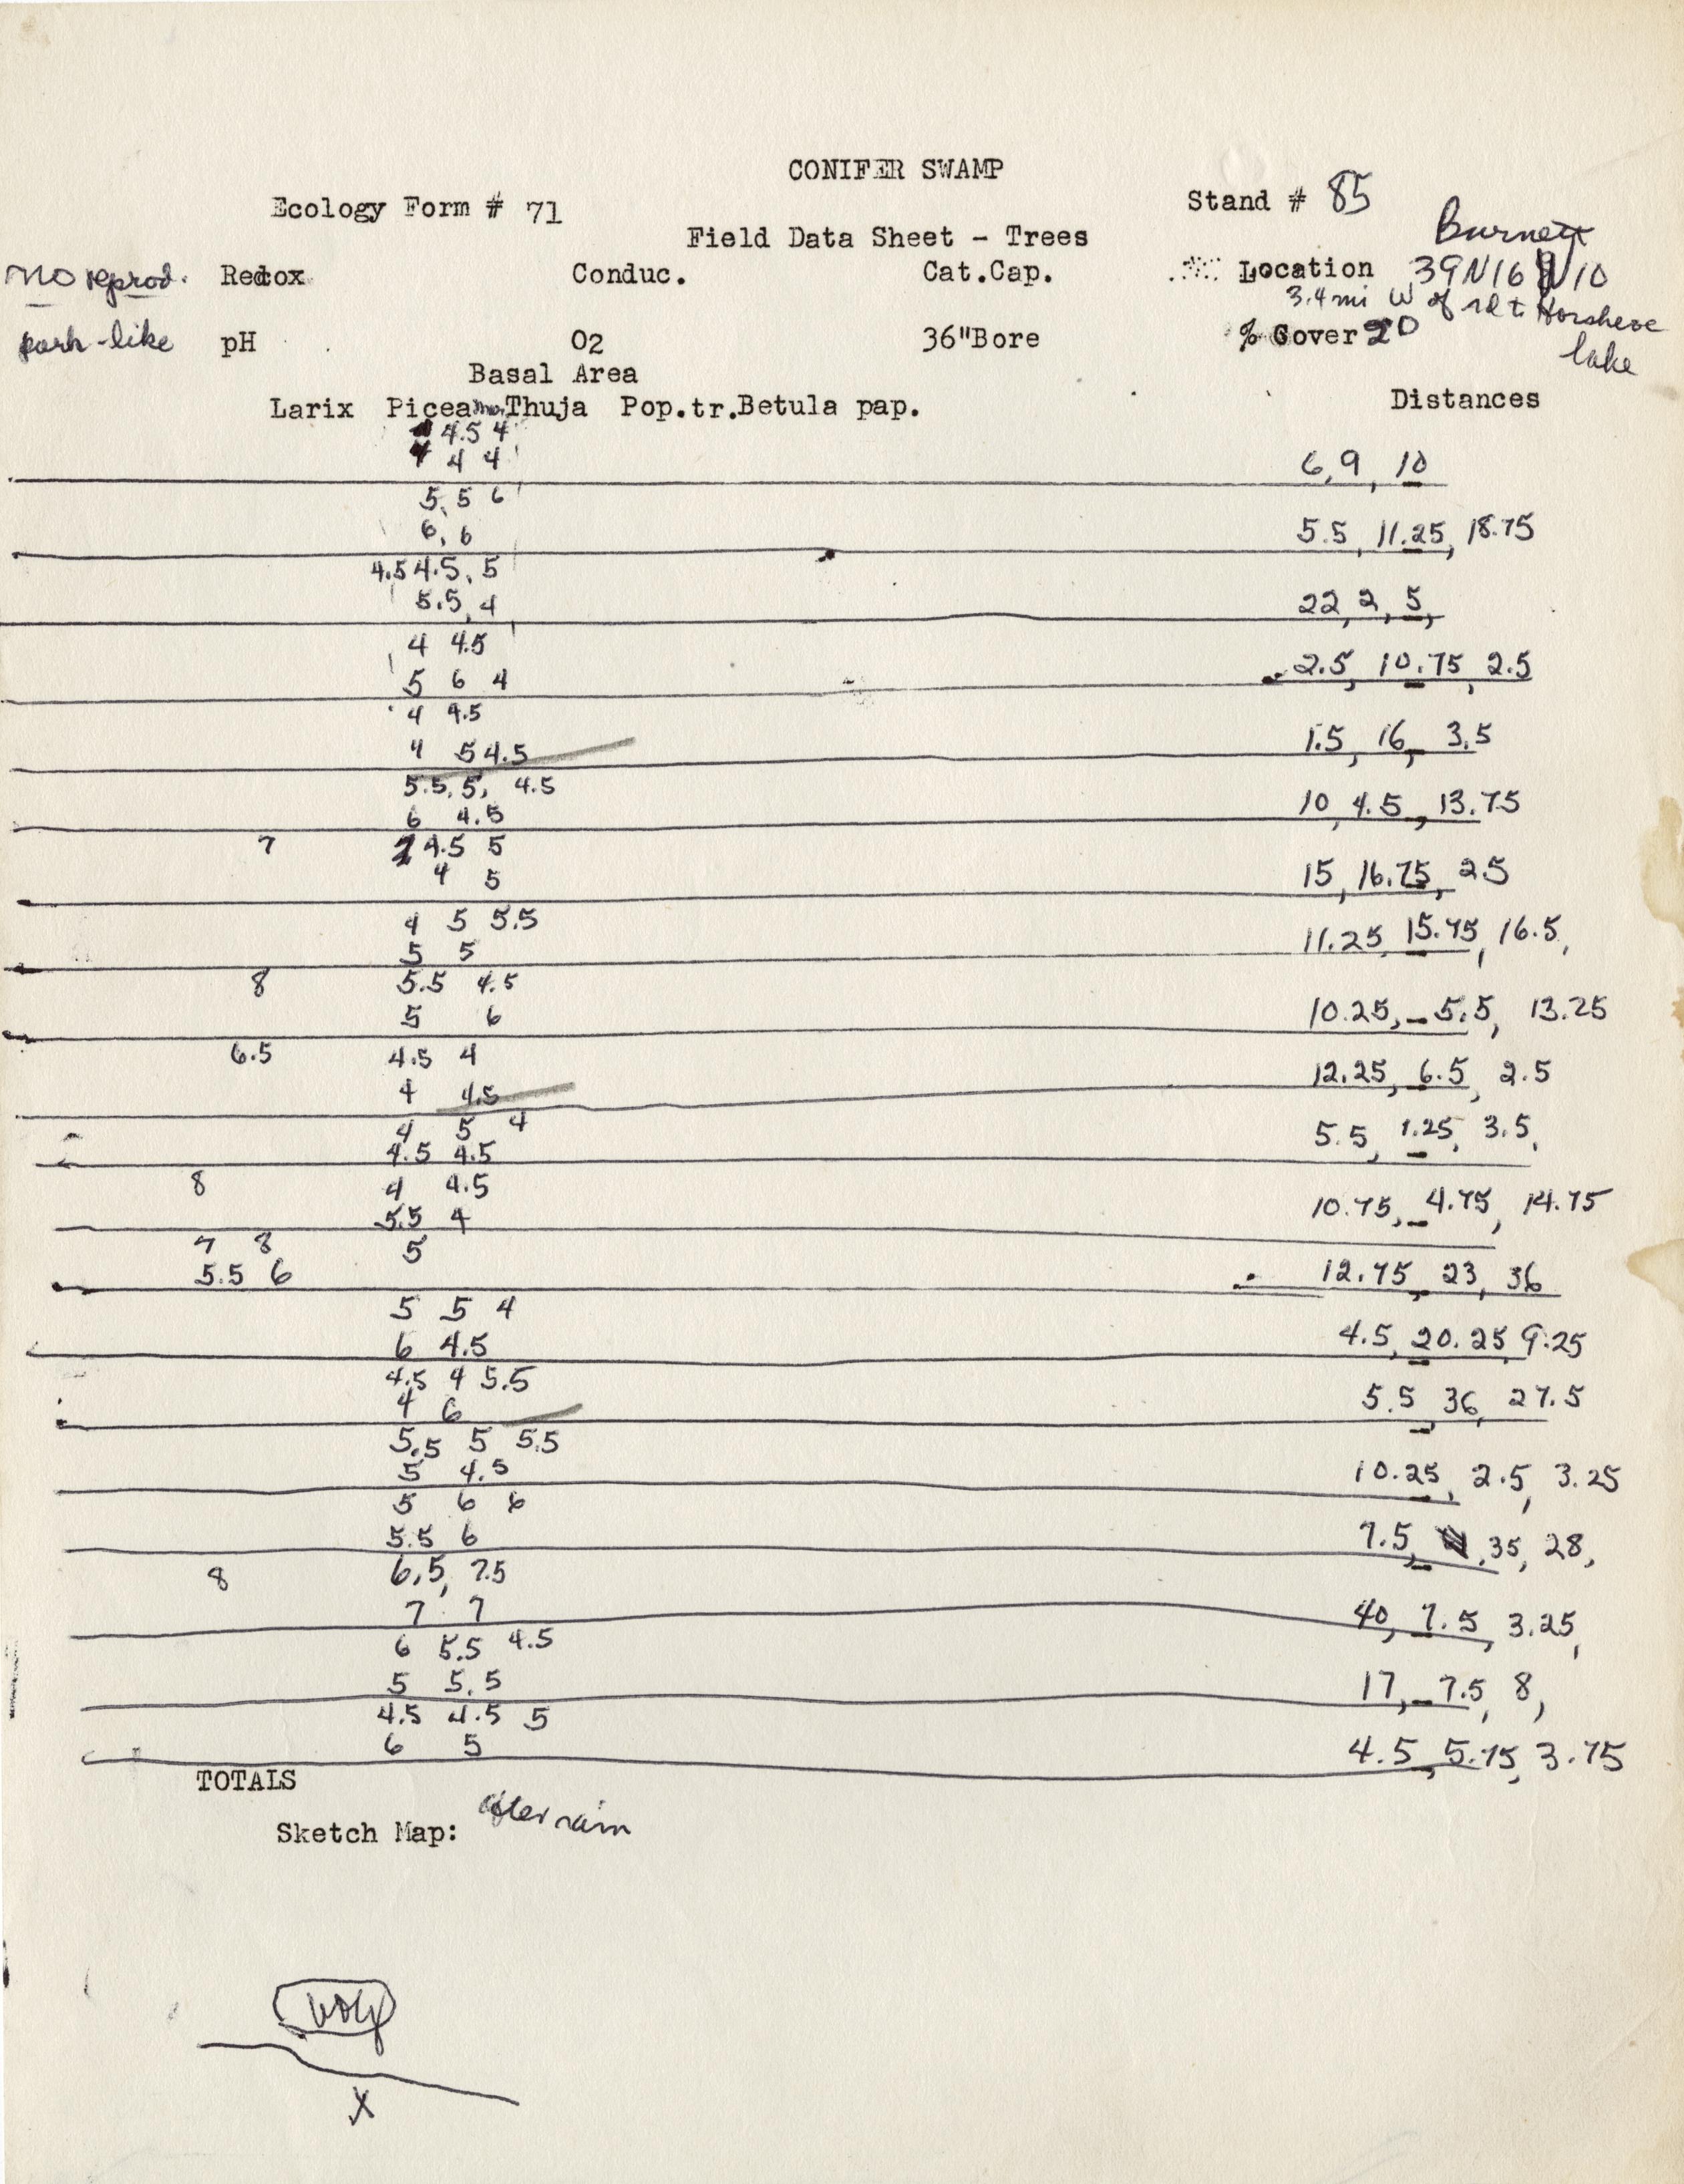 CONIFER SWAMP
Ecology Form # 71 Stand # 85
Burnett
Field Data Sheet - Trees
no reprod. Redox Conduc. Cat.Cap. Location 39N16W10
3.4 mi W of rd t Horshere lake
park-like pH O2 36"Bore % Cover 20
Basal Area
Larix Picea mar. Thuja Pop.tr. Betula pap. Distances
4.5 4
4 4 6, 9, 10
5, 5 6
6, 6 5.5, 11.25, 18.75
4.5 4.5, 5
5.5, 4 22, 2, 5,
4 4.5
5 6 4 2.5, 10.75, 2.5
4 4.5
4 5 4.5 1.5, 16, 3.5
5.5, 5, 4.5
6 4.5 10, 4.5, 13.75
7 4.5 5
4 5 15, 16.75, 2.5
4 5 5.5
5 5 11.25, 15.75, 16.5,
8 5.5 4.5
5 6 10.25, 5.5, 13.25
6.5 4.5 4
4 4.5 12.25, 6.5, 2.5
4 5 4
4.5 4.5 5.5, 1.25, 3.5,
8 4 4.5
5.5 4 10.75, 4.75, 14.75
7 8 5
5.5 6 12.75, 23, 36
5 5 4
6 4.5 4.5, 20.25, 9.25
4.5 4 5.5
4 6 5.5, 36, 27.5
5.5 5 5.5
5 4.5 10.25, 2.5, 3.25
5 6 6
5.5 6 7.5, 35, 28,
8 6.5, 7.5
7 7 40, 7.5, 3.25,
6 5.5 4.5
5 5.5 17, 7.5, 8,
4.5 4.5 5
6 5 4.5, 5.75, 3.75
TOTALS
Sketch Map: after rain
X